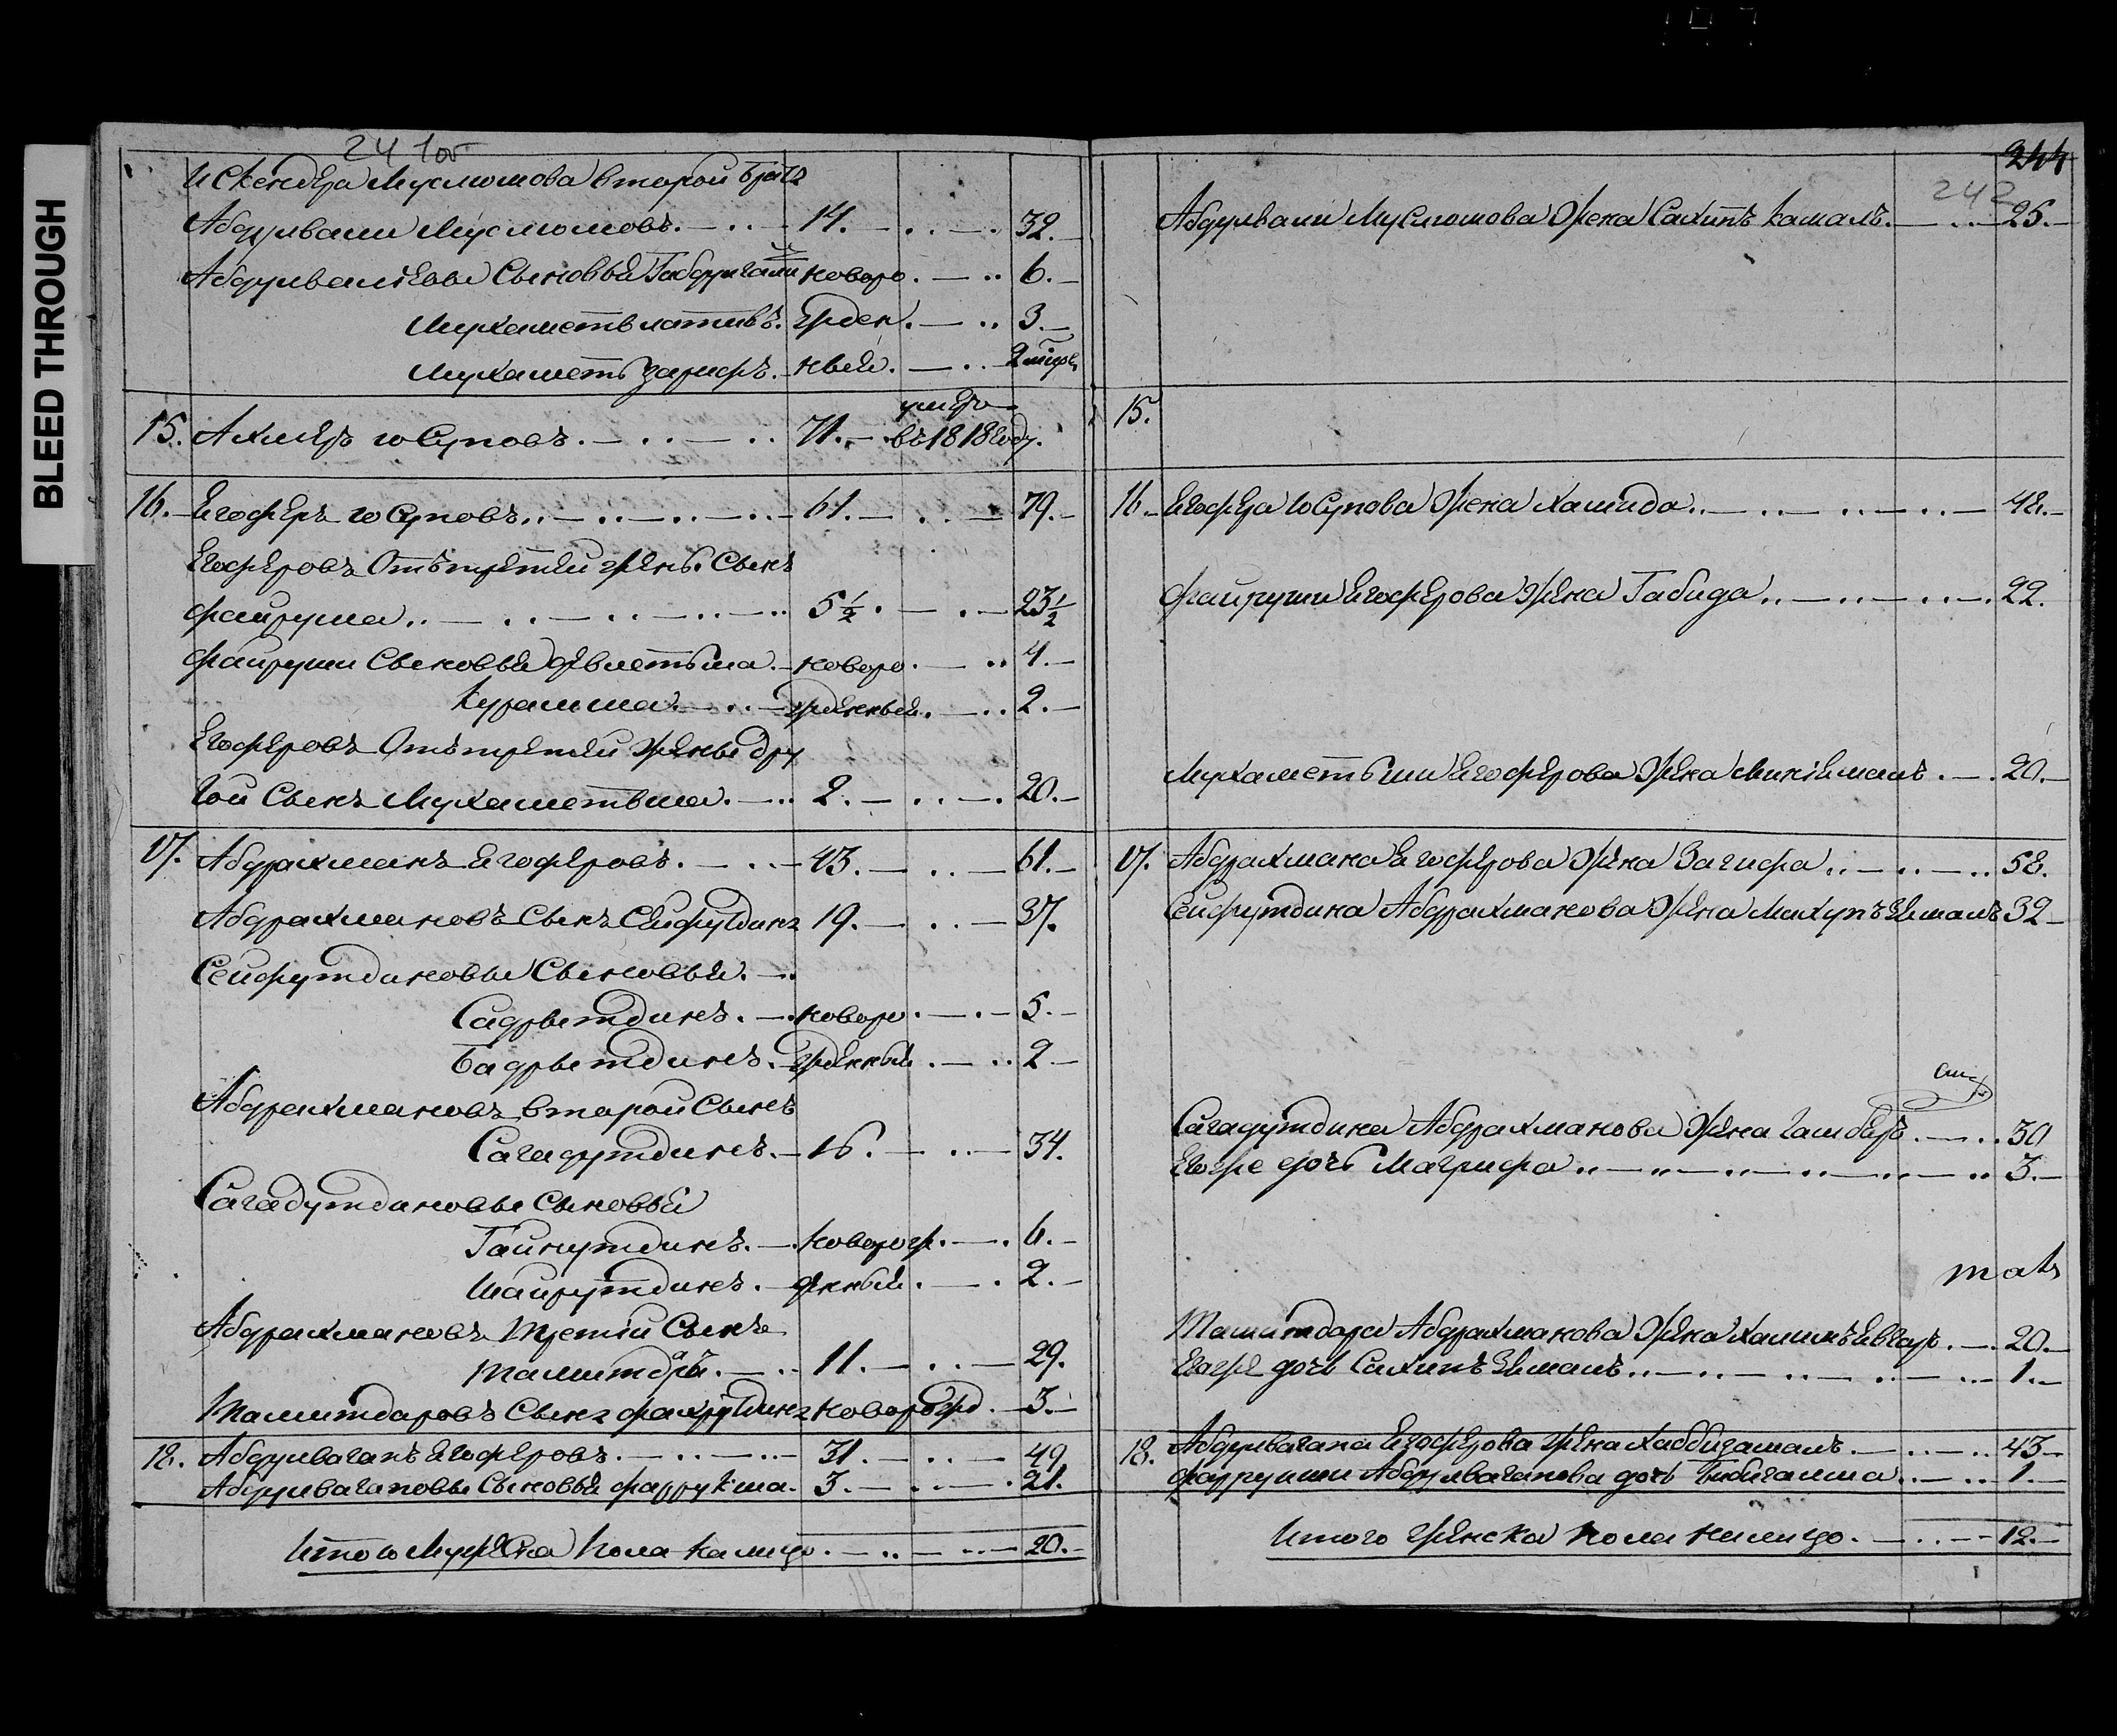 BLEED THROUGH
241об
Искендера Муслюмова второй братъ
Абдулвали Муслюмовъ. 14. 32.
Абдулвалiевы Сыновья Габдулгали новоро 6.
Мухаметълативъ. жден. 3.
Мухаметь Зарифъ. ныя. 2
15. Ахмеръ Юсуповъ. 71.
умеръ
въ 1818 году.
16. Ягоферъ Юсуповъ 61. 79.
Ягоферовъ Отъ третей жены Сынъ
Файруша 5½. 23½
Файруши Сыновья Девлетьша новоро 4.
Курамша жденныя. 2.
Ягоферовъ Отъ третей жены дру
гой Сынъ Мухаметьша. 2. 20.
17. Абдрахманъ Ягоферовъ. 43. 61.
Абдрахмановъ Сынъ Сейфутдинъ 19. 37.
Сейфутдиновы Сыновья.
Садрытдинъ. новоро. 5.
Бадрытдинъ. жденныя. 2
Абдрахмановъ второй Сынъ
Сагадутдинъ. 16. 34.
Сагадутдиновы Сыновья
Гайнутдинъ. новорож. 6.
Шайрутдинъ. денныя. 2.
Абдрахмановъ Третiй Сынъ
Ташитдаръ. 11. 29.
Ташитдаровъ Сынъ Фахрутдинъ новорожд. 3.
18. Абдулвагапъ Ягоферовъ 31. 49.
Абдулвагаповы Сыновья Фаррухша. 3. 21.
Итого Мужеска Пола налицо. 20.
244
242
Абдулвали Муслюмова Жена Сахипъ Камалъ. 25.
15.
16. Ягофера Юсупова Жена Хамида 48.
Файруши Ягоферова Жена Габида 22.
Мухаметьши Ягоферова Жена Минiямалъ. 20.
17. Абдрахмана Ягоферова Жена Загифа 58.
Сейфутдина Абдрахманова Жена Махупъ Ямалъ 32
Сагадутдина Абдрахманова Жена Гамбаръ 30
Ягоже дочь Магрифа 3.
Ташитдара Абдрахманова Жена 20.
Ягоже дочь Сахипъ Ямалъ 1.
18. Абдулвагапа Ягоферова Жена Хаббизамалъ. 43
Фаррухши Абдулвагапова дочь 1.
Итого Женска пола налицо. 12.